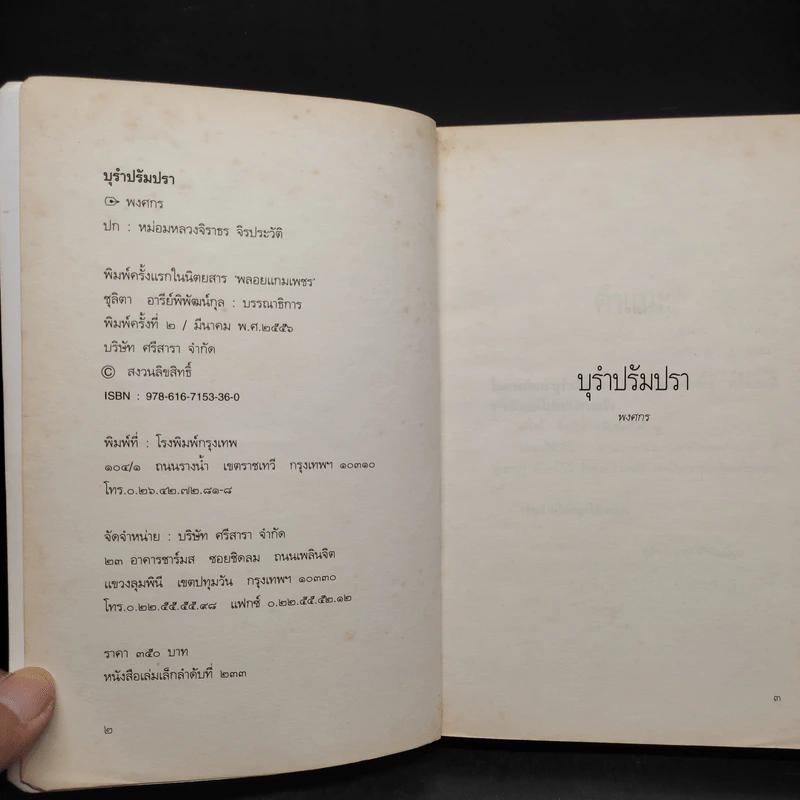 บุรำปรัมปรา
พงศกร
ปก : หม่อมหลวงจิราธร จิรประวัติ
พิมพ์ครั้งแรกในนิตยสาร 'พลอยแกมเพชร'
ชุลิตา อารีย์พิพัฒน์กุล : บรรณาธิการ
พิมพ์ครั้งที่ ๒ / มีนาคม พ.ศ.๒๕๕๖
บริษัท ศรีสารา จำกัด
© สงวนลิขสิทธิ์
ISBN : 978-616-7153-36-0
พิมพ์ที่ : โรงพิมพ์กรุงเทพ
๑๐๔/๑ ถนนรางน้ำ เขตราชเทวี กรุงเทพฯ ๑๐๓๑๐
โทร.๐.๒๖.๔๒.๗๒.๘๑-๘
จัดจำหน่าย : บริษัท ศรีสารา จำกัด
๒๓ อาคารชาร์มส ซอยชิดลม ถนนเพลินจิต
แขวงลุมพินี เขตปทุมวัน กรุงเทพฯ ๑๐๓๓๐
โทร.๐.๒๒.๕๕.๕๕.๙๘ แฟกซ์ ๐.๒๒.๕๕.๕๒.๑๒
ราคา ๓๕๐ บาท
หนังสือเล่มเล็กลำดับที่ ๒๓๓
๒
บุรำปรัมปรา
พงศกร
๓